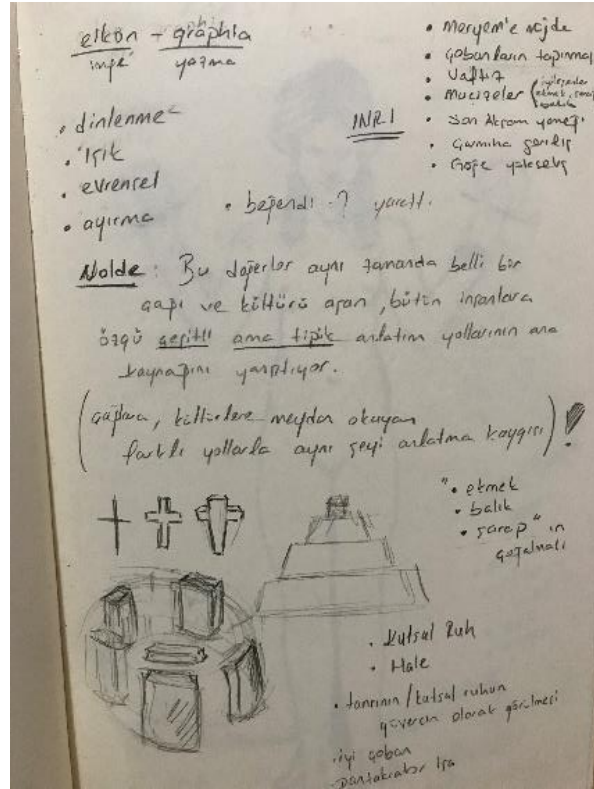 eikon - graphia
imge yazma
• dinlenme
• ışık
• evrensel
• ayırma
INRI
• Meryem'e müjde
• Çobanların tapınması
• Vaftiz
• Mucizeler
• Son Akşam yemeği
• Çarmıha geriliş
• Göğe yükseliş
• beğendi -? yarattı.
Nolde: Bu değerler aynı zamanda belli bir
çağı ve kültürü aşan, bütün insanlara
özgü çeşitli ama tipik anlatım yollarının ana
kaynağını yansıtıyor.
(çağlara, kültürlere meydan okuyan
farklı yollarla aynı şeyi anlatma kaygısı)!
"• ekmek
• balık
• şarap" ın
çoğalması
• Kutsal Ruh
• Hale
• tanrının / kutsal ruhun
güvercin olarak görülmesi
• iyi çoban
- Pantakrator İsa